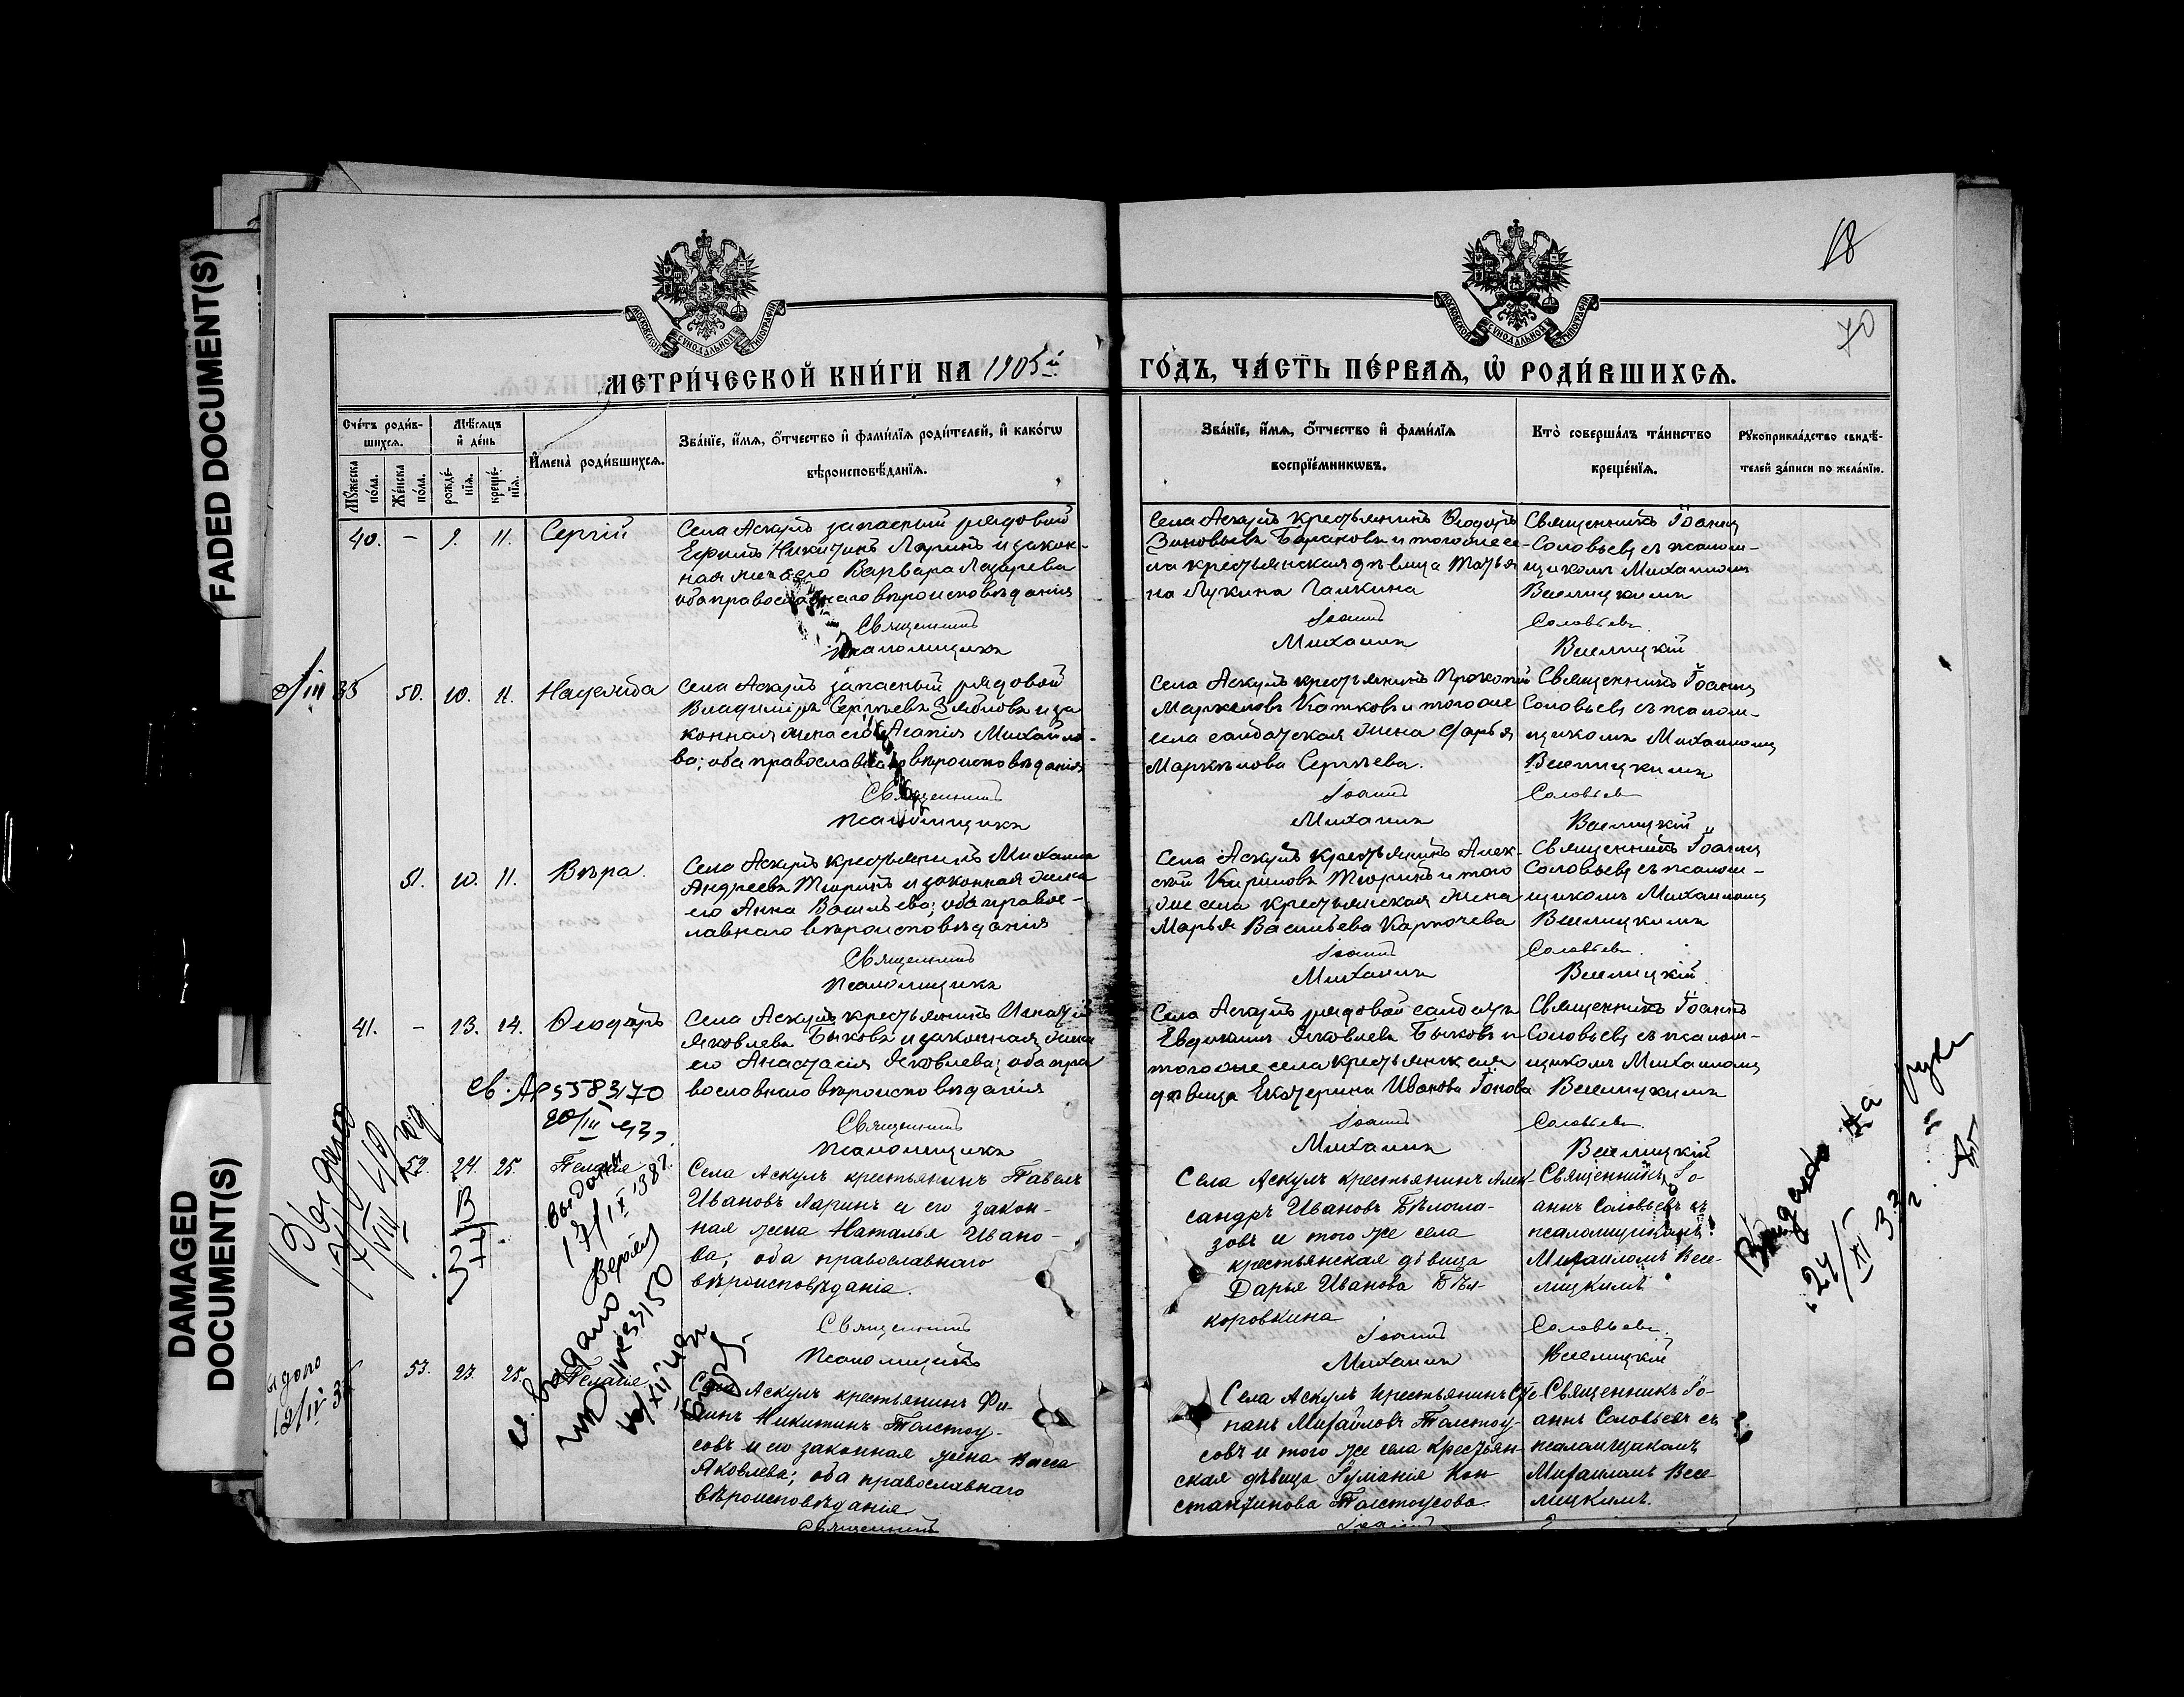 FADED DOCUMENT(S)
DAMAGED
DOCUMENT(S)
18
70
МОСКОВСКОЙ СѴНОДАЛЬНОЙ ТИПОГРАФІИ
МОСКОВСКОЙ СѴНОДАЛЬНОЙ ТИПОГРАФІИ
МЕТРИ́ЧЕСКОЙ КНИ́ГИ НА 1905й ГО́ДЪ, ЧА́СТЬ ПЕ́РВАѦ, Ѡ҆ РОДИ́ВШИХСѦ.
Сче́тъ роди́в-
шихсѧ.
Мꙋ́жеска по́ла.
Же́нска по́ла.
Мѣ́сѧцъ
и҆ де́нь
рожде́-
нїѧ.
креще́-
нїѧ.
И҆мена̀ роди́вшихсѧ.
Зва́нїе, и҆́мѧ, о҆́тчество и҆ фами́лїѧ роди́телей, и҆ како́гѡ
вѣроисповѣ́данїѧ.
Зва́нїе, и҆́мѧ, о҆́тчество и҆ фами́лїѧ
воспрїе́мникѡвъ.
Кто̀ соверша́лъ та́инство
креще́нїѧ.
Рꙋкоприкла́дство свидѣ́-
телей за́писи по жела́нїю.
40. - 9. 11. Сергій
Села Аскулъ запасный рядовой
Ефимъ Никитинъ Ларинъ и закон-
ная жена его Варвара Лазарева
оба православнаго вѣроисповѣданія
Священникъ
Псаломщикъ
Села Аскулъ крестьянинъ Ѳеодоръ
Зиновьевъ Барановъ и того же се-
ла крестьянская дѣвица Татья
на Лукина Галкина
Іоаннъ
Михаилъ
Священникъ Іоаннъ
Соловьевъ съ псалом-
щикомъ Михаиломъ
Веселицкимъ
Соловьевъ
Веселицкій
/III 35
50. 10. 11. Надежда
Села Аскулъ запасный рядовой
Владиміръ Сергѣевъ Зябловъ и за
конная жена его Агапія Михайло-
ва; оба православнаго вѣроисповѣданія
Священникъ
Псаломщикъ
Села Аскулъ крестьянинъ Прокопій
Маркеловъ Катковъ и того же
села солдатская жена Дарья
Маркелова Сергѣева.
Іоаннъ
Михаилъ
Священникъ Іоаннъ
Соловьевъ съ псалом-
щикомъ Михаиломъ
Веселицкимъ
Соловьевъ
Веселицкій
51. 10. 11. Вѣра.
Села Аскулъ крестьянинъ Михаилъ
Андреевъ Тюринъ и законная жена
его Анна Васильева; оба право-
славнаго вѣроисповѣданія
Священникъ
Псаломщикъ
Села Аскулъ крестьянинъ Алек-
сѣй Кириловъ Тюринъ и того
же села крестьянская жена
Марья Васильева Карпочева
Іоаннъ
Михаилъ
Священникъ Іоаннъ
Соловьевъ съ псалом-
щикомъ Михаиломъ
Веселицкимъ
Соловьевъ.
Веселицкій
41. - 13. 14. Ѳеодоръ
Села Аскулъ крестьянинъ Игнатій
Яковлевъ Быковъ и законная жена
его Анастасія Яковлева; оба пра
вославнаго вѣроисповѣданія
Священникъ
Псаломщикъ
Села Аскулъ рядовой солдатъ
Евдокимъ Яковлевъ Быковъ и
того же села крестьянская
дѣвица Екатерина Иванова
Іоаннъ
Михаилъ
Священникъ Іоаннъ
Соловьевъ съ псалом-
щикомъ Михаиломъ
Веселицкимъ
Соловьевъ.
Веселицкій
Выдано
52. 24. 25. Пелагія
Села Аскулъ крестьянинъ Павелъ
Ивановъ Ларинъ и его закон-
ная жена Наталья Ивано-
ва; оба православнаго
вѣроисповѣданія.
Священникъ
Псаломщикъ
Села Аскулъ крестьянинъ Алек-
сандръ Ивановъ Бѣлогла-
зовъ и того же села
крестьянская дѣвица
Дарья Иванова Бѣло-
коровкина
Іоаннъ
Михаилъ
Священникъ Іо-
аннъ Соловьевъ съ
псаломщикомъ
Михаиломъ Весе-
лицкимъ
Соловьевъ.
Веселицкій
Выдано на руки
24/XI 33 г.
53. 23. 25. Пелагія
Села Аскулъ крестьянинъ Фи-
липъ Никитинъ Толстоу-
совъ и его законная жена Васса
Яковлева; оба православнаго
вѣроисповѣданія
Священникъ
Села Аскулъ крестьянинъ Сте-
панъ Михайловъ Толстоу-
совъ и того же села крестьян-
ская дѣвица Іуліанія Кон
стантинова Толстоусова
Іоаннъ
Священникъ Іо-
аннъ Соловьевъ съ
псаломщикомъ
Михаиломъ Весе-
лицкимъ.